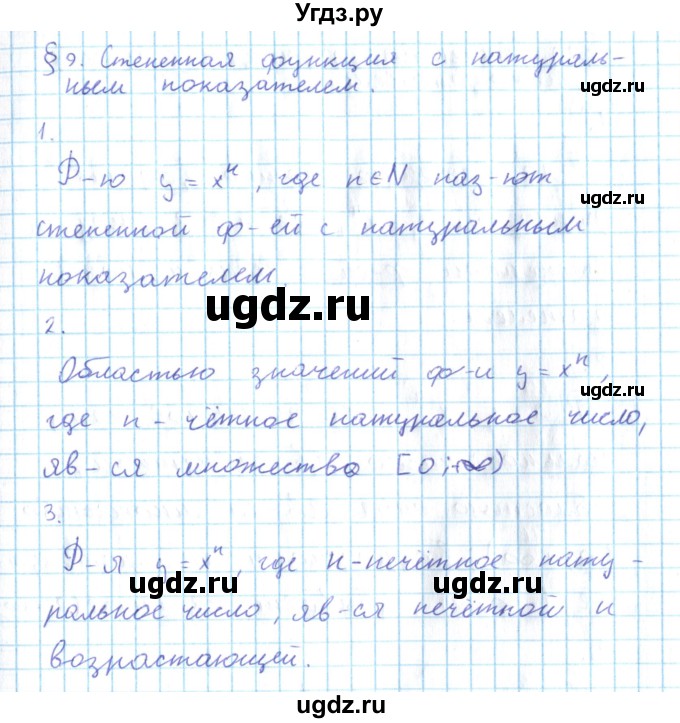 Угдз.ру
§ 9. Степенная функция с натураль-
ным показателем.
ugdz.ru
1.
ugdz.ru
Ф-ю y = xⁿ, где n∈N наз-ют
ugdz.ru
степенной ф-ей с натуральным
показателем.
ugdz.ru
2.
Областью значений ф-и y = xⁿ,
где n - чётное натуральное число,
яв-ся множество [0;+∞)
3.
Ф-я y = xⁿ, где n-нечётное нату-
ugdz.ru ugdz.ru
ральное число, яв-ся нечётной и
возрастающей.
ugdz.ru